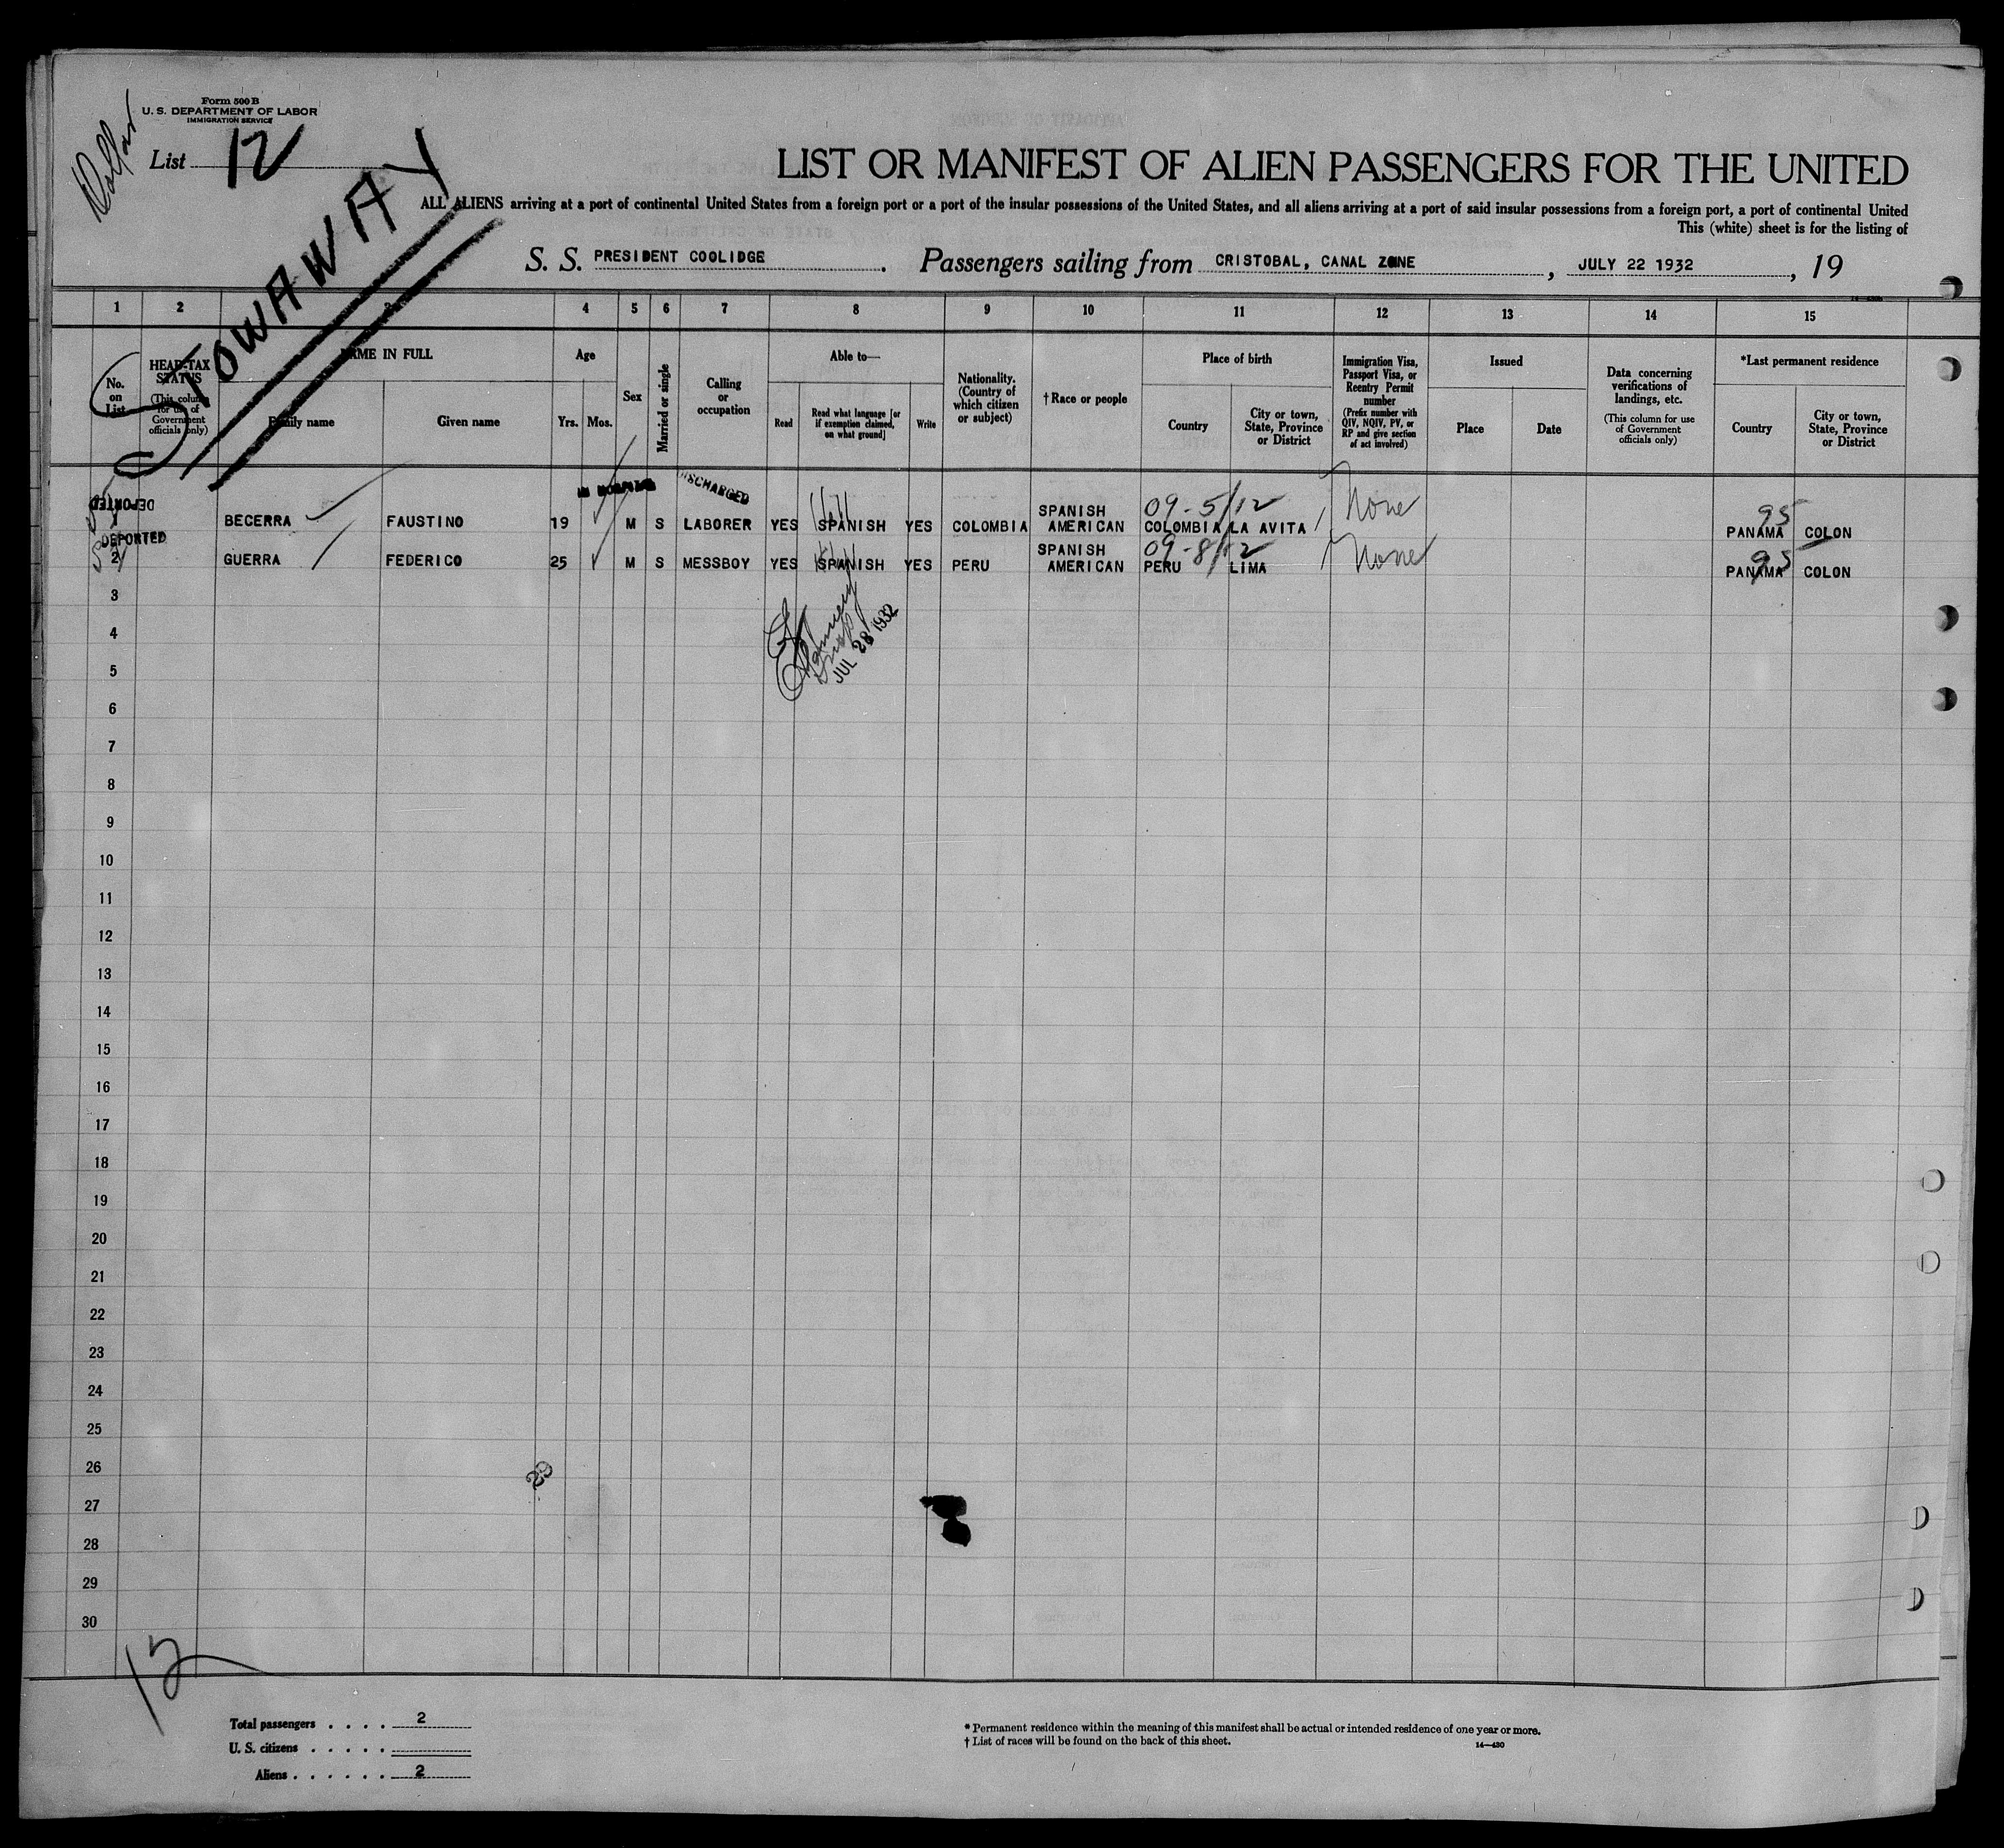 Form 500 B
U. S. DEPARTMENT OF LABOR
IMMIGRATION SERVICE
Dollar
List 12
STOWAWAY
LIST OR MANIFEST OF ALIEN PASSENGERS FOR THE UNITED
ALL ALIENS arriving at a port of continental United States from a foreign port or a port of the insular possessions of the United States, and all aliens arriving at a port of said insular possessions from a foreign port, a port of continental United
This (white) sheet is for the listing of
S. S. PRESIDENT COOLIDGE. Passengers sailing from CRISTOBAL, CANAL ZONE, JULY 22 1932, 19
1 2 3 4 5 6 7 8 9 10 11 12 13 14 15
No. on List
HEAD-TAX STATUS (This column for use of Government officials only)
NAME IN FULL
Family name Given name
Age
Yrs. Mos.
Sex
Married or single
Calling or occupation
Able to—
Read
Read what language [or if exemption claimed, on what ground]
Write
Nationality. (Country of which citizen or subject)
† Race or people
Place of birth
Country
City or town, State, Province or District
Immigration Visa, Passport Visa, or Reentry Permit number (Prefix number with QIV, NQIV, PV, or RP and give section of act involved)
Issued
Place Date
Data concerning verifications of landings, etc. (This column for use of Government officials only)
*Last permanent residence
Country
City or town, State, Province or District
DEPORTED IN HOSPITAL DISCHARGED
BECERRA FAUSTINO 19 M S LABORER YES SPANISH YES COLOMBIA SPANISH AMERICAN 09-5/12 COLOMBIA LA AVITA None 95 PANAMA COLON
DEPORTED
2 GUERRA FEDERICO 25 M S MESSBOY YES SPANISH YES PERU SPANISH AMERICAN 09-8/12 PERU LIMA None 95 PANAMA COLON
3
4
JUL 28 1932
5
6
7
8
9
10
11
12
13
14
15
16
17
18
19
20
21
22
23
24
25
26
27
28
29
30
12
Total passengers . . . . 2
U. S. citizens . . . . .
Aliens . . . . . . 2
* Permanent residence within the meaning of this manifest shall be actual or intended residence of one year or more.
† List of races will be found on the back of this sheet.
14—430